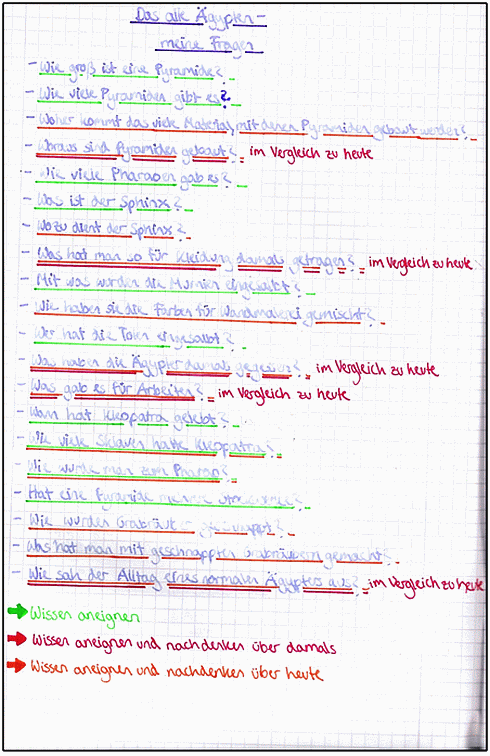 Das alte Ägypten -
meine Fragen
- Wie groß ist eine Pyramide?
- Wie viele Pyramiden gibt es?
- Woher kommt das viele Material, mit denen Pyramiden gebaut werden?
- Woraus sind Pyramiden gebaut? im Vergleich zu heute
- Wie viele Pharaonen gab es?
- Was ist der Sphinx?
- Wozu dient der Sphinx?
- Was hat man so für Kleidung damals getragen? im Vergleich zu heute
- Mit was wurden die Mumien eingesalbt?
- Wie haben sie die Farben für Wandmalerei gemischt?
- Wer hat die Toten eingesalbt?
- Was haben die Ägypter damals gegessen? im Vergleich zu heute
- Was gab es für Arbeiten? im Vergleich zu heute
- Wann hat Kleopatra gelebt?
- Wie viele Sklaven hatte Kleopatra?
- Wie wurde man zum Pharao?
- Hat eine Pyramide mehrere
- Wie wurden Grabräuber geschnappt?
- Was hat man mit geschnappten Grabräubern gemacht?
- Wie sah der Alltag eines normalen Ägypters aus? im Vergleich zu heute
Wissen aneignen
Wissen aneignen und nachdenken über damals
Wissen aneignen und nachdenken über heute